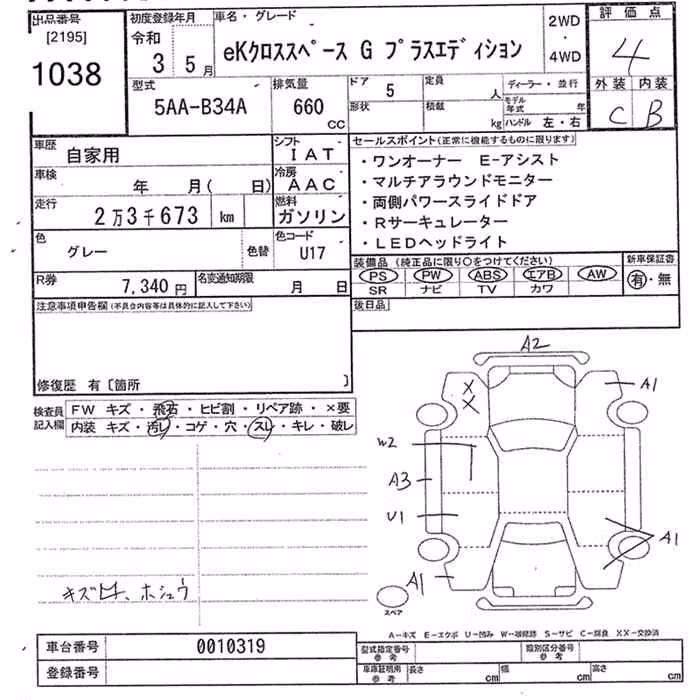 出品番号
[2195]
1038
初度登録年月
令和
3 5月
車名・グレード
eKクロススペース G プラスエディション
2WD
・
4WD
評価点
4
外装 内装
C B
型式
5AA-B34A
排気量
660
CC
ドア 5
定員 人
ディーラー・並行
形状
積載 kg
モデル年式 年
ハンドル 左・右
車歴
自家用
シフト
IAT
車検
年 月( 日)
冷房
AAC
走行
2万3千673 km
燃料
ガソリン
色
グレー
色替
色コード
U17
R券
7,340円
名変通知期限
月 日
セールスポイント(正常に機能するものに限ります)
・ワンオーナー E-アシスト
・マルチアラウンドモニター
・両側パワースライドドア
・Rサーキュレーター
・LEDヘッドライト
装備品(純正品に限り○をつけてください)
PS PW ABS エアB AW
SR ナビ TV カワ
新車保証書
有・無
後日品
注意事項申告欄(不具合内容等は具体的に記入して下さい)
修復歴 有〔箇所 〕
検査員
記入欄
FW キズ・飛石・ヒビ割・リペア跡・×要
内装 キズ・汚レ・コゲ・穴・スレ・キレ・破レ
A2
A1
X
X
W2
A3
U1
A1
A1
スペア
キズ ホシュウ
A-キズ E-エクボ U-凹み W-補修跡 S-サビ C-腐食 XX-交換済
車台番号
0010319
登録番号
型式指定番号
参考
類別区分番号
参考
車庫証明用
参考
長さ cm
幅 cm
高さ cm